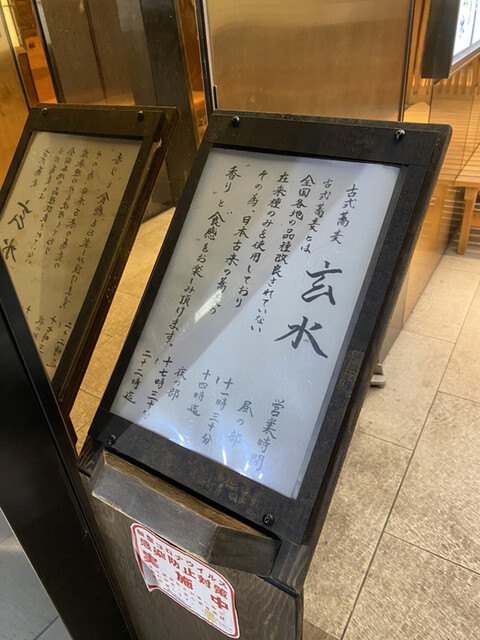 古式蕎麦
玄水
古式蕎麦とは
全国各地の品種改良されていない
在来種のみを使用しており
その為、日本古来の蕎麦の
"香り"と"食感"をお楽しみ頂けます。
営業時間
昼の部
十一時三十分
〜
十四時迄
夜の部
十七時三十分
〜
二十二時迄
新型コロナウイルス
感染防止対策
実施中